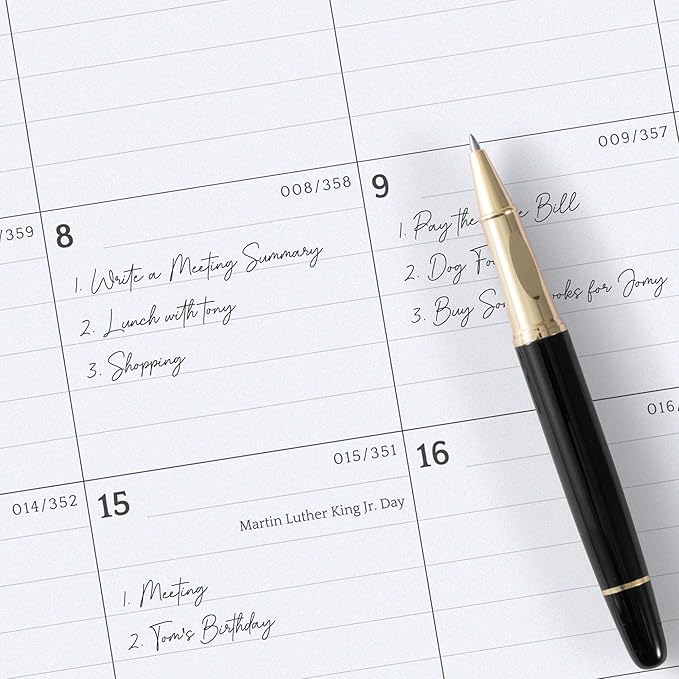 008/358
009/357
/359
8
1. Write a Meeting Summary
2. Lunch with tony
3. Shopping
9
1. Pay the Bill
2. Dog
3. Buy for Jomy
014/352
015/351
016/
15
Martin Luther King Jr. Day
1. Meeting
2. Tom's Birthday
16